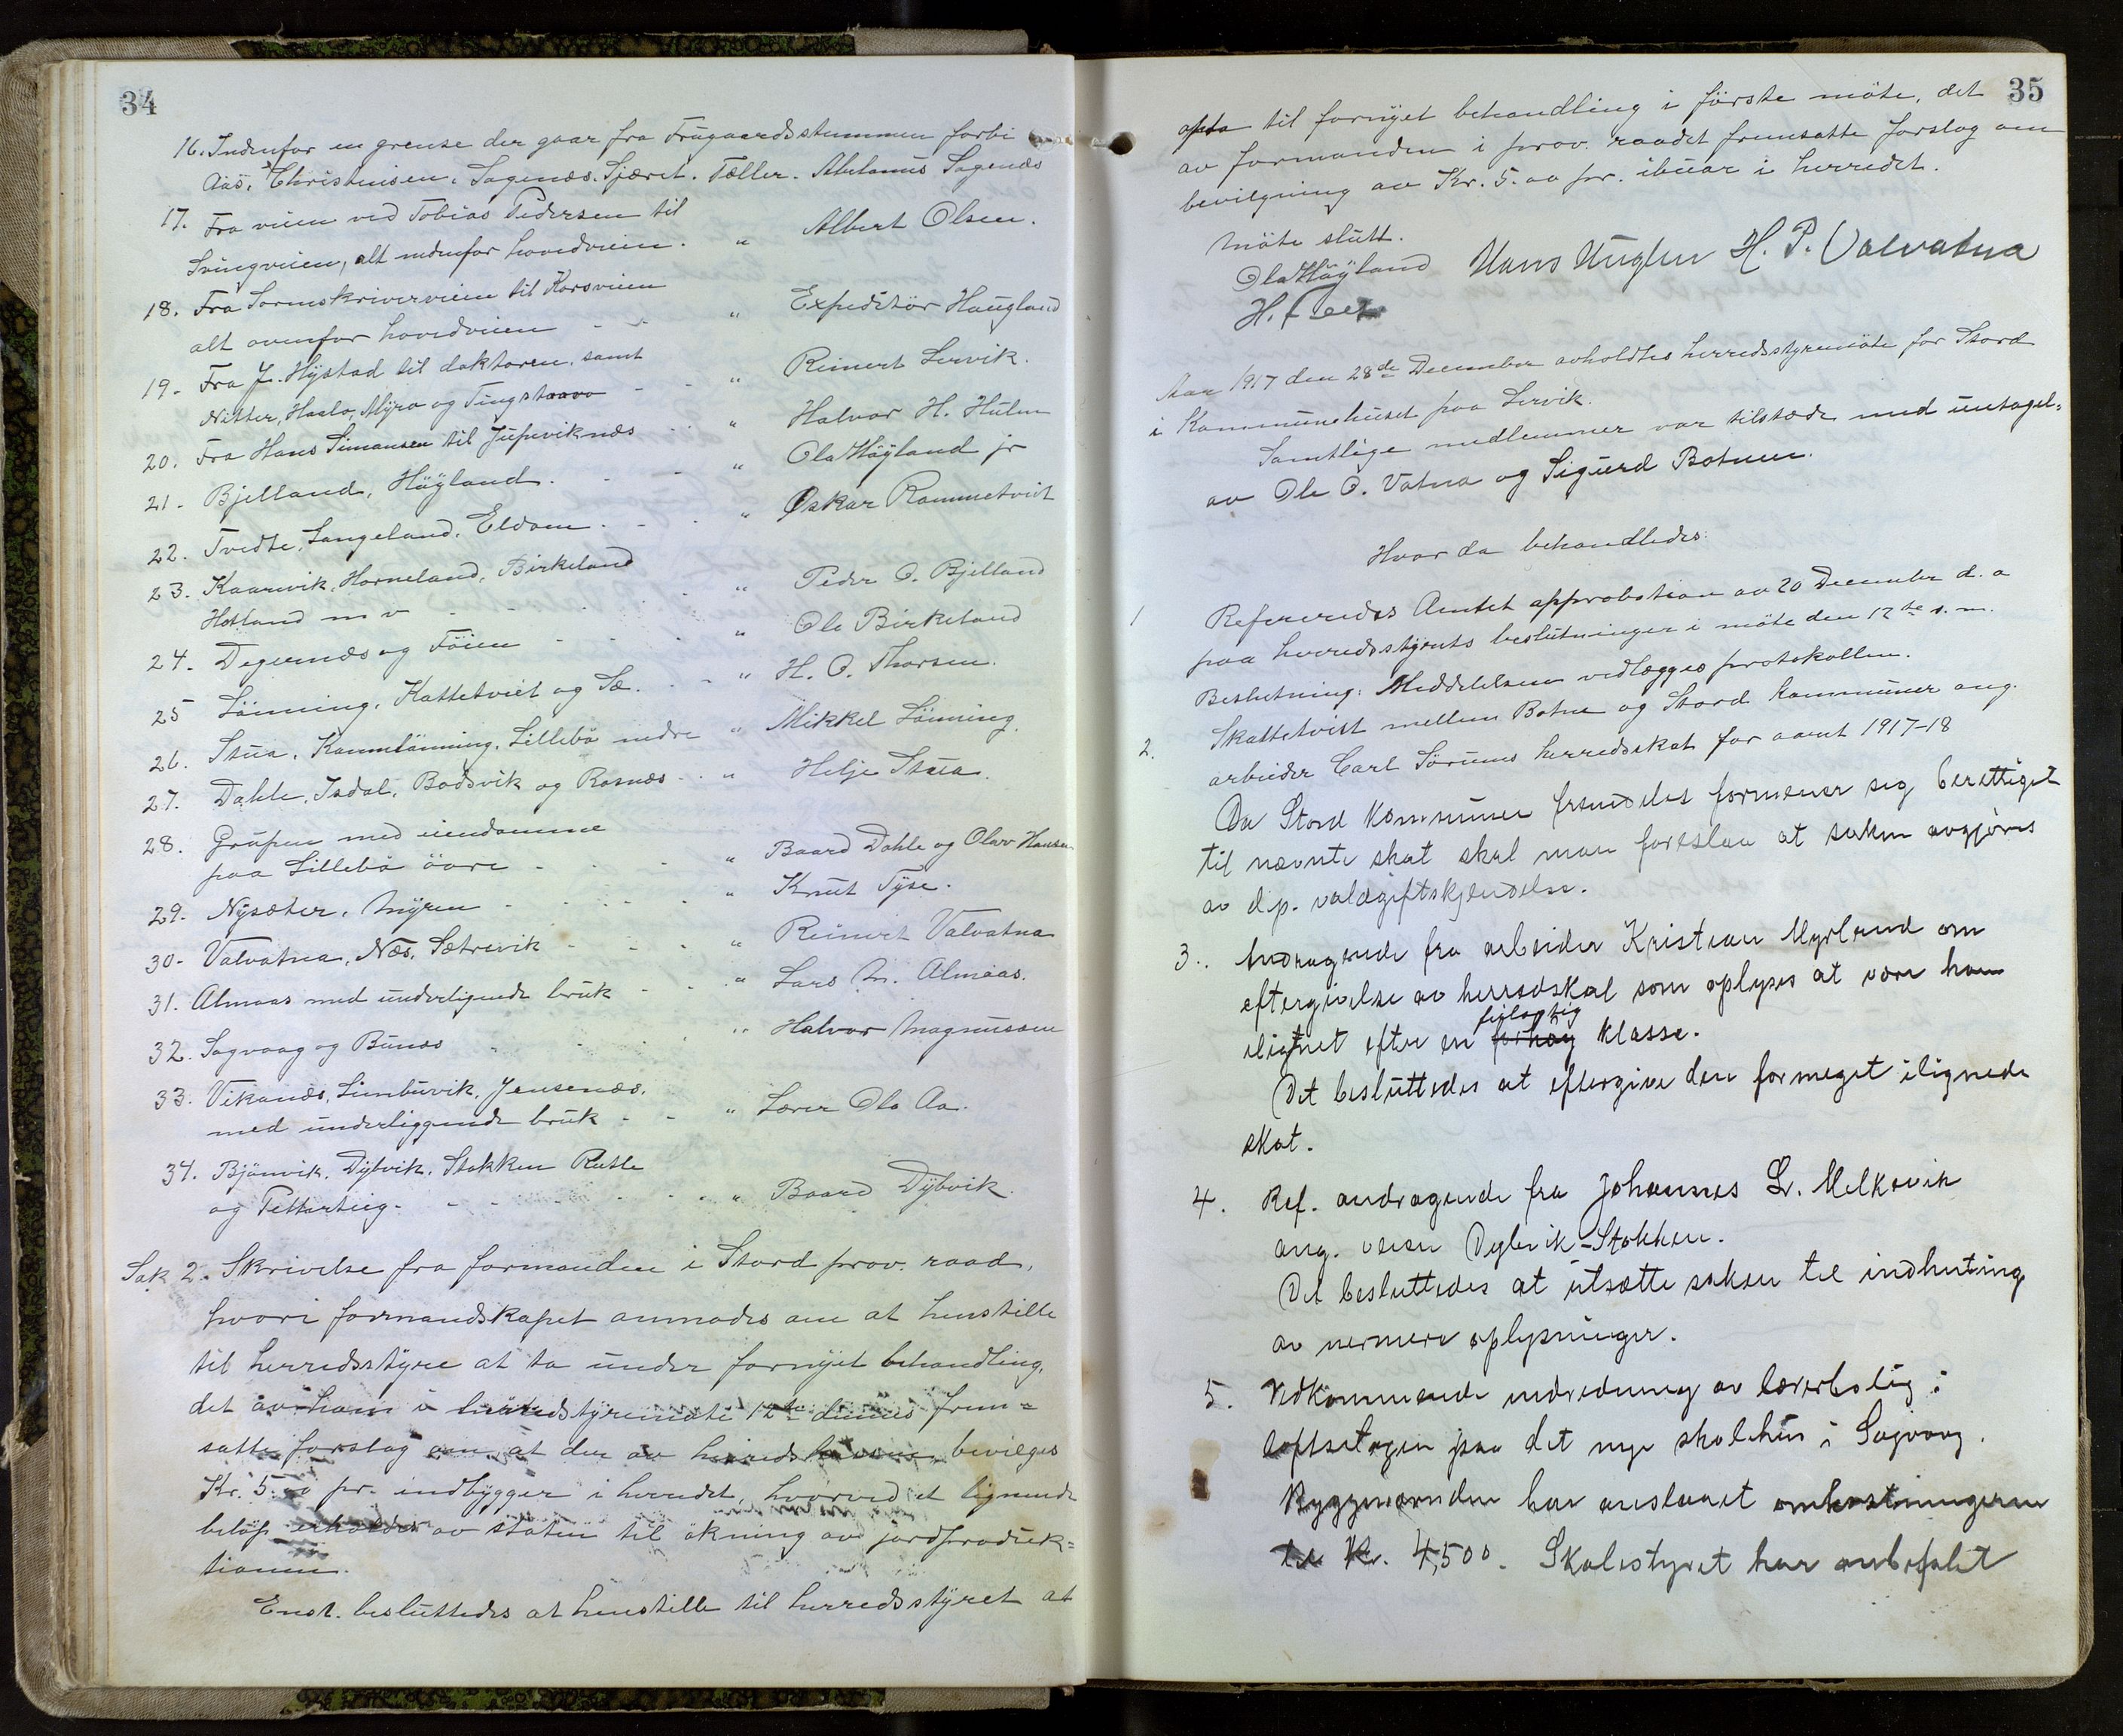 34
16. Indenfor en grense der gaar fra Frugaardsstemmen forbi
Aas, Christensen, Sagenæs. Tæller. Abelanus Sagenæs
17. Fra veien ved Tobias Pedersen til
Svingveien, alt nedenfor hovedveien. " Albert Olsen.
18. Fra Sorenskriverveien til Korsveien
alt ovenfor hovedveien - - " Expeditør Haugland
19. Fra J. Hystad til doktoren, samt
Nitter, Haslo, Myra og Tingstaavo - - " Reinert Lervik.
20. Fra Hans Simonsen til Jupeviknæs - - " Halvor H. Hulen
21. Bjelland, Höyland. - - " Ola Höyland jr
22. Tvedte, Langeland, Eldom. - - " Oskar Rommetveit
23. Kaarevik, Horneland, Birkeland
Hotland m v - - - " Peder O. Bjelland
24. Degernæs og Föien - - - " Ole Birkeland
25 Lönning, Kattetveit og Sæ. - - " H. O. Thorsen.
26. Stua, Kannelönning, Lillebö nedre " Mikkel Lönning.
27. Dahle, Isdal, Bodsvik og Rosnæs - - " Helje Stua.
28. Grupen med eiendomme
paa Lillebö övre - - - " Baard Dahle og Olav Hansen
29. Nysæter, Myren - - - " Knut Tyse.
30. Valvatna, Næs, Sætrevik - - - " Reinert Valvatna
31. Almaas med underligende bruk - - " Lars M. Almaas.
32. Sagvaag og Bunæs - - - " Halvor Magnussen
33. Vikanæs, Limbuvik, Jensenæs,
med underliggende bruk - - " Lærer Ola Aa.
34. Bjönvik, Dybvik, Stokken Rutle
og Pettarteig. - - - - " Baard Dybvik.
Sak 2. Skrivelse fra formanden i Stord prov. raad,
hvori formandskapet anmodes om at henstille
til herredsstyre at ta under fornyet behandling,
det av ham i herredsstyremöte 12te dennes frem=
satte forslag om, at der av herredskassen bevilges
Kr. 5.00 pr. indbygger i herredet, hvorved et lignende
belöp erholdes av staten til ökning av jordproduk=
tionen.
Enst. besluttedes at henstille til herredsstyret at
35
opta til fornyet behandling i første möte, det
av formanden i prov. raadet fremsatte forslag om
bevilgning av Kr. 5.00 pr. ibuar i herredet.
Möte slutt.
Ola Höyland Hans Uglen H. P. Valvatna
Aar 1917 den 28de December avholdtes herredsstyremöte for Stord
i Kommunehuset paa Lervik.
Samtlige medlemmer var tilstæde med untagel=
av Ole O. Vatna og Sigurd Botnen.
Hvor da behandledes:
1 Refereredes Amtet approbation av 20 December d. a
paa herredsstyrets beslutninger i möte den 12te s. m.
Beslutning: Meddelelsen vedlægges protokollen.
2. Skattetvist mellem Botne og Stord kommuner ang.
arbeider Carl Sörums herredsskat for aaret 1917-18
Da Stord kommune fremdeles formener seg berettiget
til nævnte skat skal man foreslaa at saken avgjøres
av dep. voldgiftskjendelse.
3. Andragende fra arbeider Kristian Myrland om
eftergivelse av herredskat som oplyses at være ham
ilignet efter en for høy feilagtig klasse.
Det besluttedes at eftergive den formeget ilignede
skat.
4. Ref. andragende fra Johannes L. Melkevik
ang. veien Dybvik-Stokken.
Det besluttedes at utsætte saken til indhenting
av nermere oplysninger.
5. Vedkommende indredning av lærerbolig i
loftsetagen paa det nye skolehus i Sagvaag.
Byggenevnden har anslaaet omkostningerne
til Kr. 4,500. Skolestyret har anbefalet